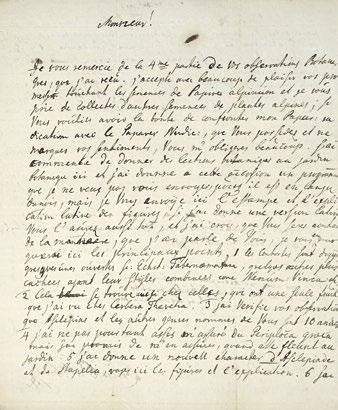 Monsieur!
Je vous remercie de la 4me partie de vos observations Botani-
ques, que j'ai reçu. j'accepte avec beaucoup de plaisir vos pro-
messes touchant les semences de Papaver alpinum et je vous
prie de collecter d'autres semences de plantes alpines; si
Vous voudriez avoir la bonté de confronter mon Papaver
avec le Papaver Nudic:, que Vous possedés et me
marquer vos sentiments, Vous m'obligerés beaucoup. j'ai
commencé de donner des lectures botaniques au jardin
botanique ici et j'ai donné a cette occasion un programme
que je ne veux pas vous envoyer, parce il est en langue
danois, mais je Vous envoye ici l'estampe et l'expli-
cation latine des figures; si j'ai donné une version latine
Vous l'aurés aussi tôt, et j'ai crois, que Vous serés content
de la maniere, que j'ai parlé de Vous, je vous
ici les principaux points, 1 les
ouverts f: Echit. Tabernaemont., quelques autres plus
cachées ayant leur stiles Nerium Vinca
2 Cela se trouve aussi chez celles, que ont une seule
que j'ai vu chez Cerbera Thevetia 3 j'ai Verifié vos observations
que Asclepias et les autres genres nommés de Vous sont 10 andr:
4 j'ai ne pas pourtant assés m'assuré du Periploca graeca
mais j'ai promis de m'en assurer, quand elle fleurit au
jardin. 5 j'ai donné un nouvell character d'Asclepiade
et de Stapelia, voyés ici les figures et l'explication. 6 j'ai